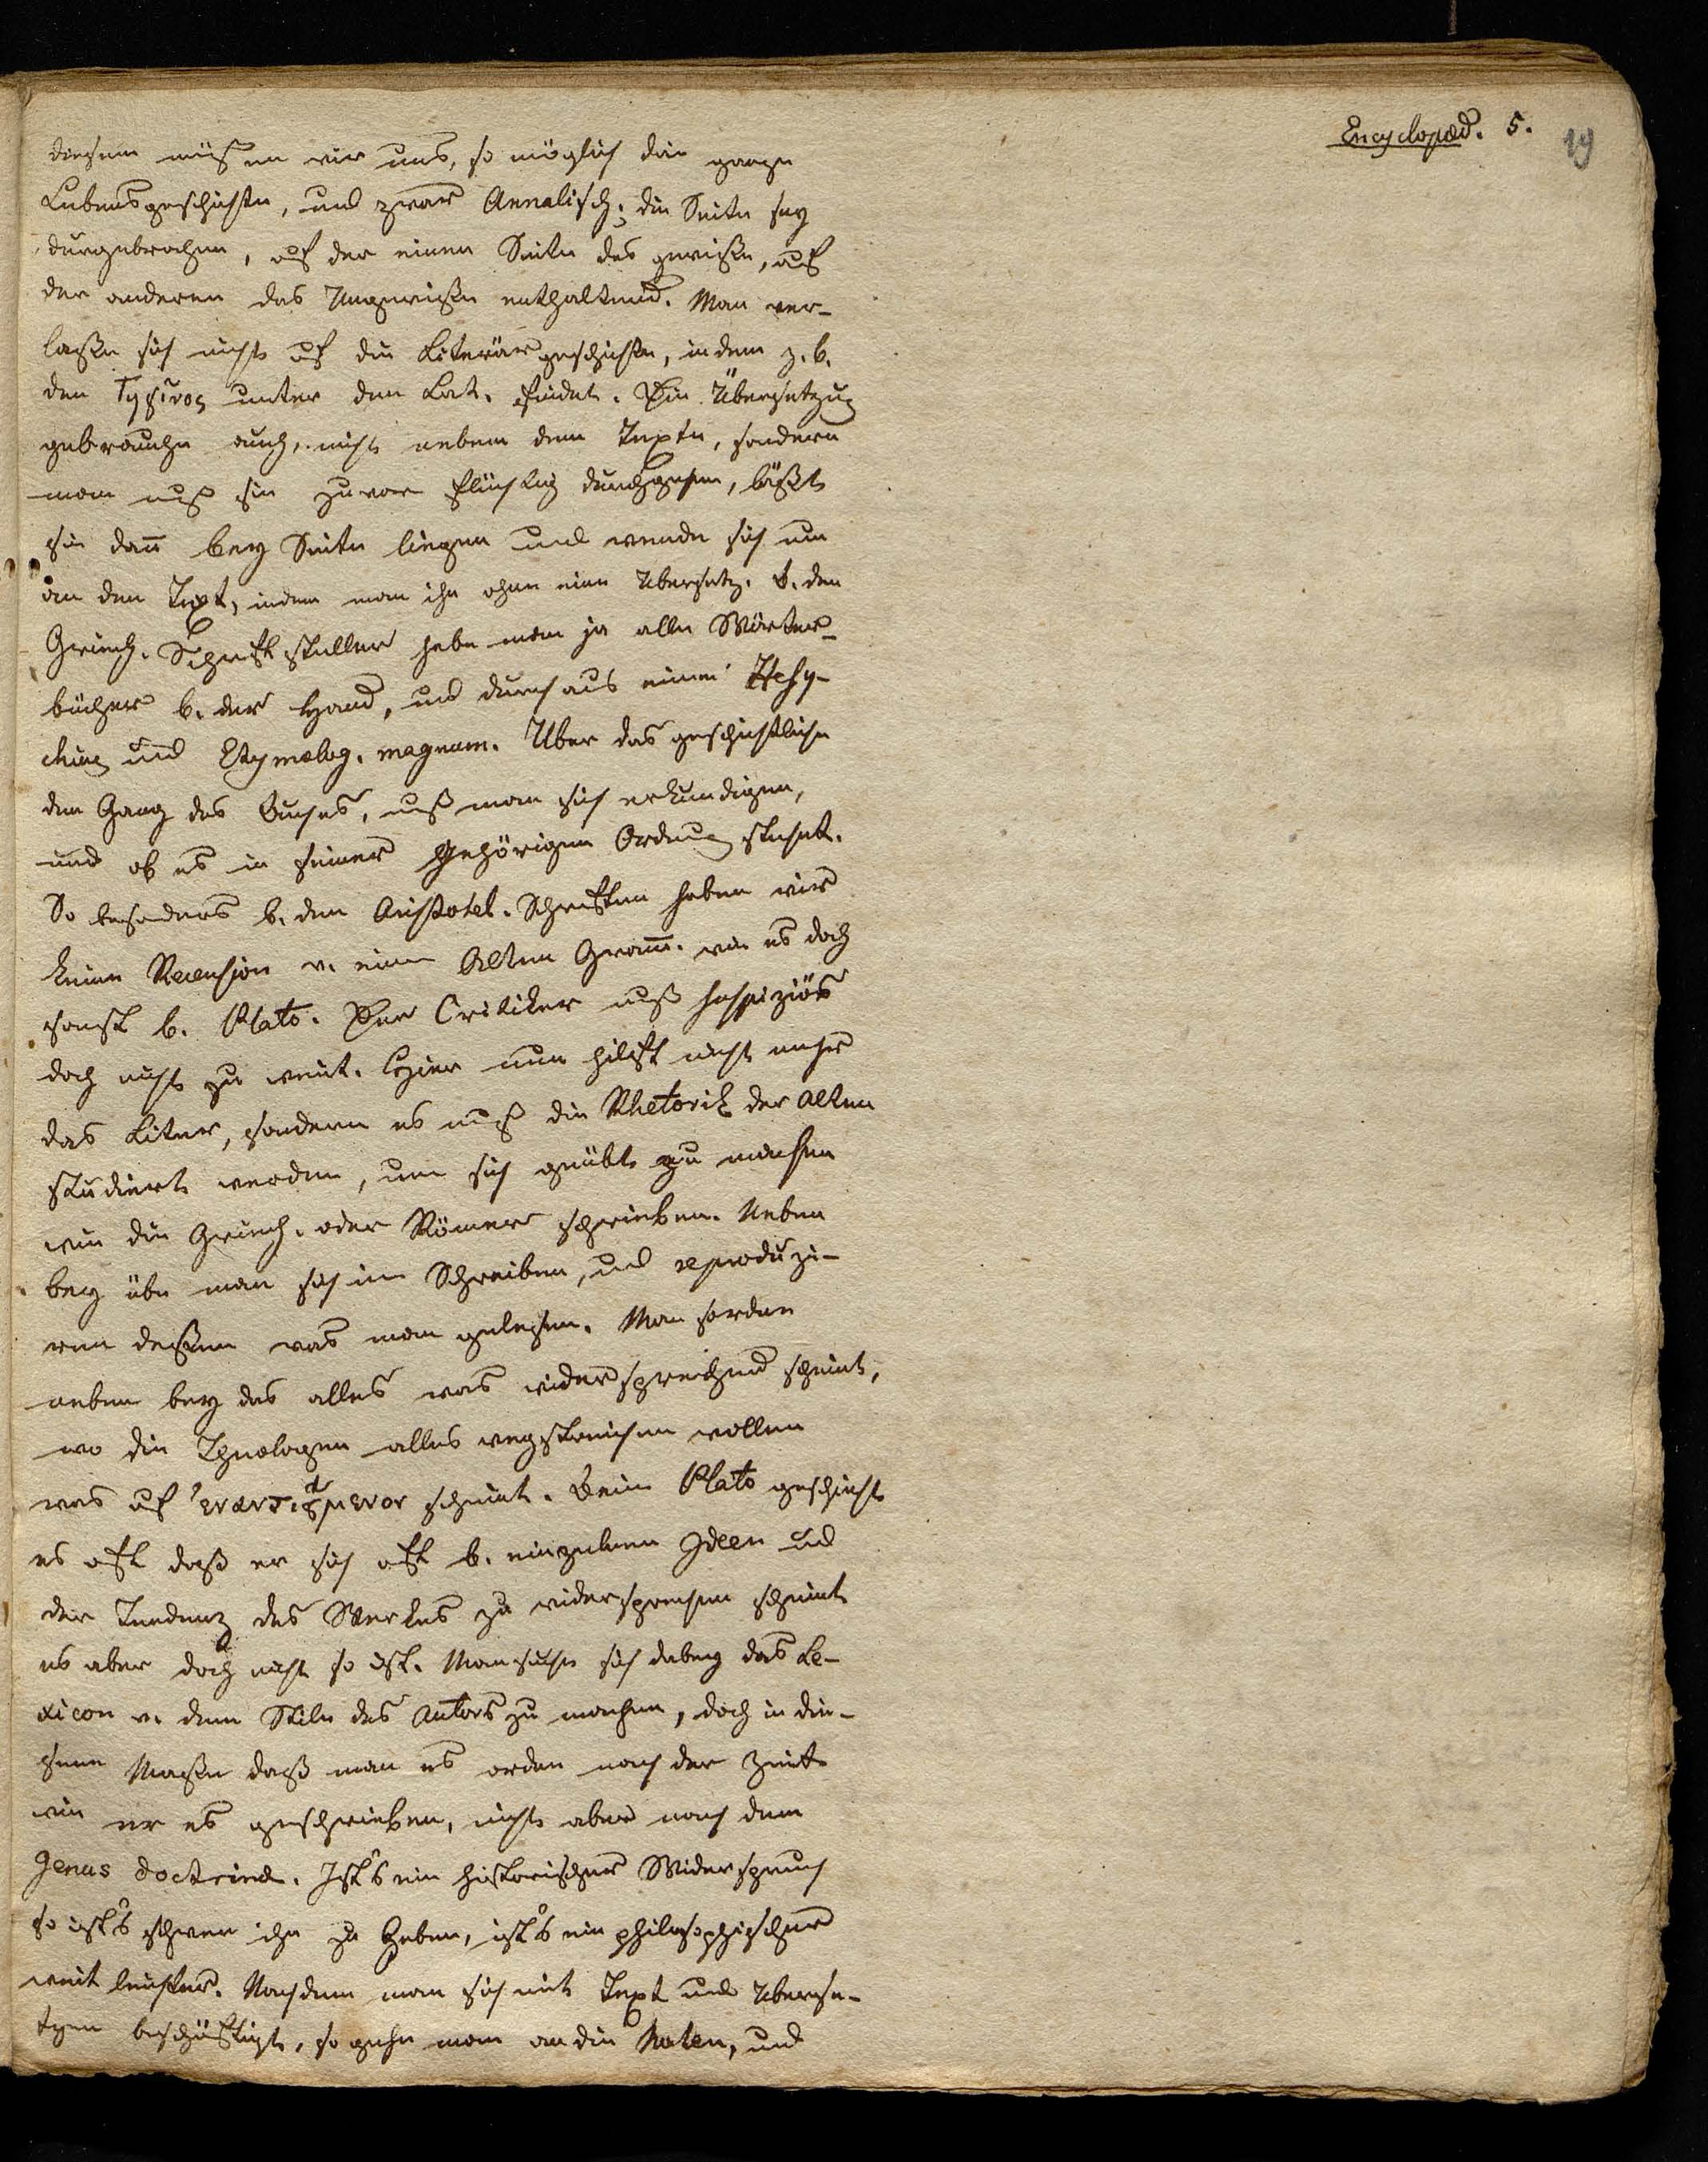 Encyclopæd. 5.
19
diesem müßen wir uns, so möglich die ganze
Lebensgeschichte, und zwar Annalisch; die Seite sey
durgebrochen, auf der einen Seite das gewiße, auf
der anderen das Ungewiße enthaltend. Man ver-
laße sich nicht auf die Literärgeschichte, indem z. b.
den unter den Lat. findet. Die Übersetzung
gebrauche auch, nicht neben dem Texte, sondern
man muß sie zuvor flüchtig durchgehen, läßt
sie dañ bey Seite liegen und wende sich nun
an den Text, indem man ihn ohne eine Übersetz. b. den
Griech. Schriftsteller habe man ja alle Wörter-
bücher b. der Hand, und durchaus einen Hesy-
chius und Etymolog. magnum. Über das geschichtliche
den Gang des Buches, muß man sich erkundigen,
und ob es in seiner Gehörigen Ordnung stehet.
So besonders b. den Aristotel. Schriften haben wir
keine Recension v. einen Alten Gram̄. wie es doch
sonst b. Plato. Der Critiker muß
doch nicht zu weit. Hier nun hilft nicht mehr
das Liter, sondern es muß die Rhetorik der Alten
studiert werden, um sich geübt zu machen
wie die Griech. oder Römer schrieben. Neben
bey übe man sich im Schreiben, und reproduzi-
ren deßen was man gelesen. Man fordere
neben bey das alles was widersprechend scheint,
wo die Theologen alles wegstreichen wollen
was auf scheint. Beim Plato geschieht
es oft daß er sich oft b. einzelnen Ideen und
der Tendenz des Werkes zu widersprechen scheint
es aber doch nicht so ist. Man suche sich dabey das Le-
xicon v. dem Stile des Autors zu machen, doch in die-
sem Maße daß man es orden nach der Zeit
wie er es geschrieben, nicht aber nach dem
Genus doctrinæ. Ist's ein historischer Widerspruch
so ist's schwer ihn zu heben, ist's ein philosophischer
weit leichter. Nachdem man sich mit Text und Überse-
tzen beschäftigt, so gehe man an die Noten, und